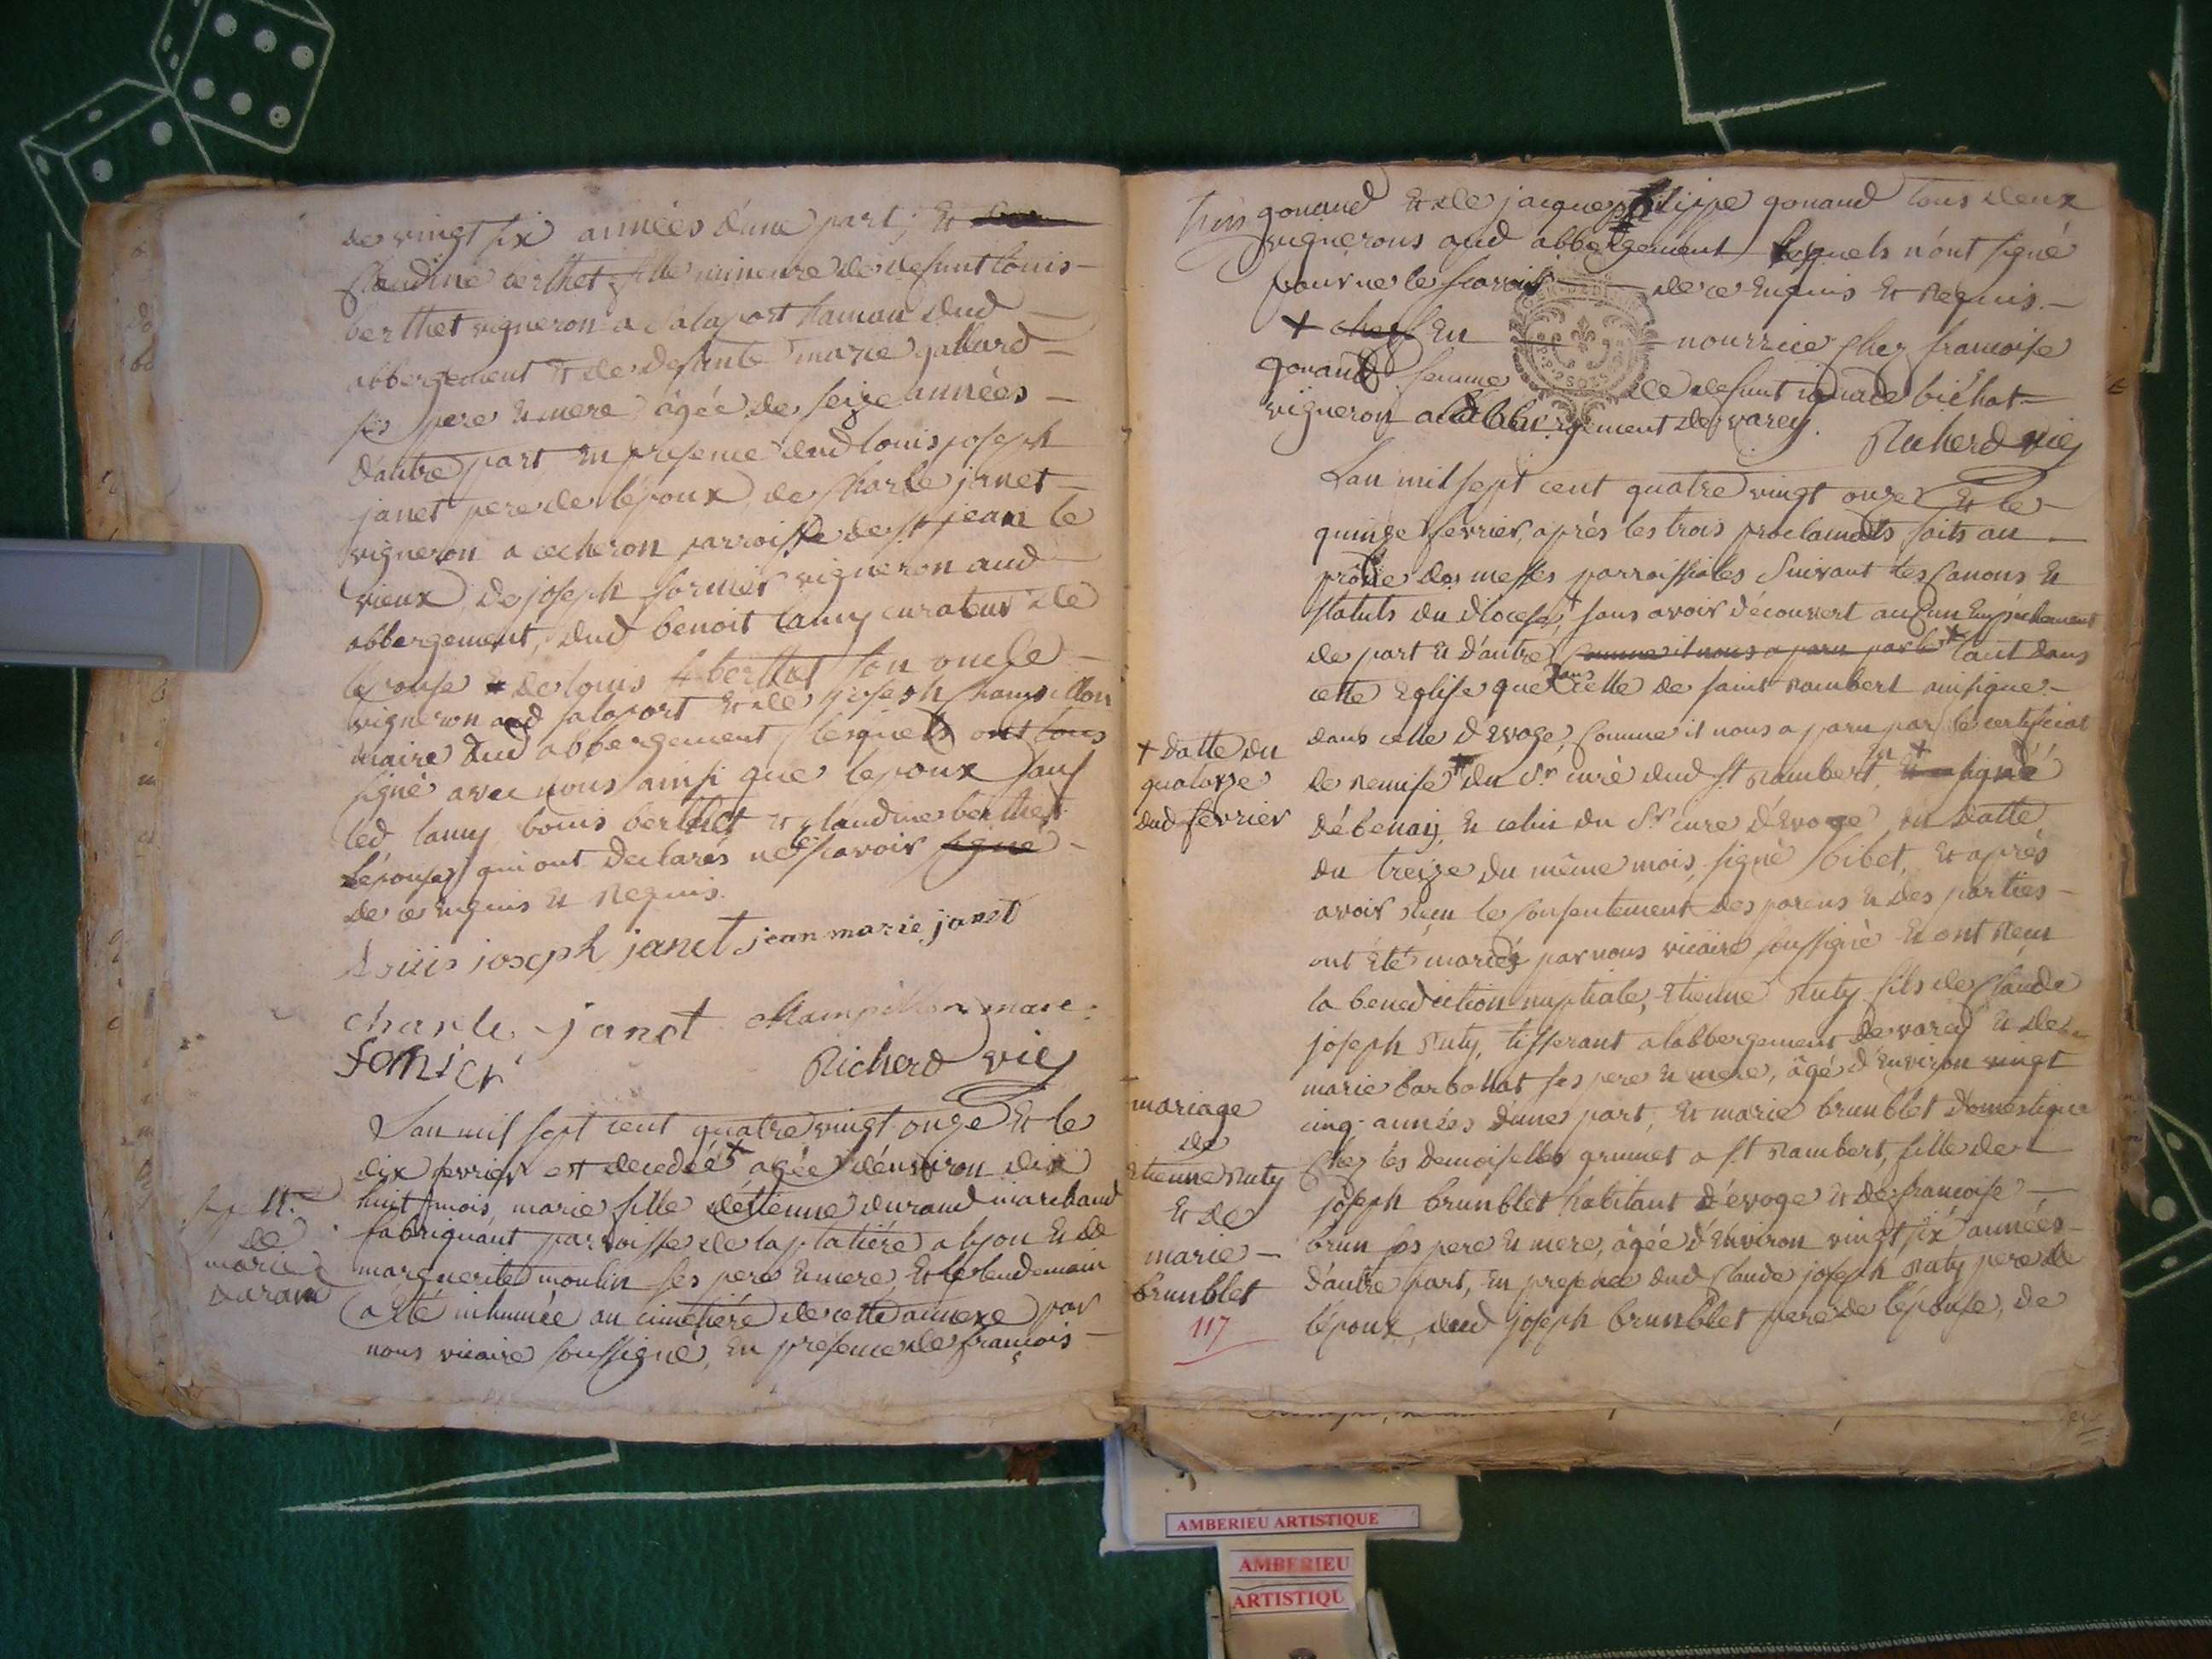 de vingt six années d'une part, et
Claudine berthet fille mineure de defunt louis
berthet vigneron a salaport hamau dud
abbergement et de defunte marie gallard
ses pere et mere âgée de seize années
d'autre part en presence dud louis joseph
janet pere de l'époux, de charle janet
vigneron a cocheron parroisse de st jean le
vieux, de joseph fornier vigneron aud
abbergement, dud benoit lamy curateur de
l'épouse de louis berthet son oncle
vigneron aud salaport et de joseph champillon
maire dud abbergement lesquels ont tous
signé avec nous ainsi que l'epoux sauf
led lamy louis berthet et claudine berthet
l'épouse qui ont declarés ne sçavoir signé
de ce enquis et requis.
Louis joseph janet jean marie janet
charle janet Champillon maire
fornier Richerd vic
L'an mil sept cent quatre vingt onze et le
dix fevrier est decedeé + agée d'environ dix
huit mois, marie fille d'étienne durand marchand
fabriquant parroisse de la platiére a lyon et de
marguerite moulin ses pere et mere et le lendemain
a été inhumée au cimetiére de cette annexe par
nous vicaire soussigné, en presence de françois
de
marie
durand
gonand et de jacque philippe gonand tous deux
vignerons aud abbergement lesquels n'ont signé
pour ne le sçavoir de ce enquis et requis.
+ chez en nourrice chez francoise
gonand femme de defunt claude bichat
vigneron a l'abbergement de varey.
Richerd vic
L'an mil sept cent quatre vingt onze et le
quinze fevrier, aprés les trois proclamats faits au
prône des messes parroissiales suivant les canons et
statuts du diocese, sans avoir découvert aucun empechement
de part et d'autre comme il nous a paru par le + tant dans
cette eglise que dans celle de saint rambert ainsi que
dans celle d'evoge, comme il nous a paru par le certificat
de remise + du sr curé dud st rambert, signé
débenay, et celui du sr cure d'evoge en datte
du treize du même mois, signé sibet, et aprés
avoir reçu le consentement des parens et des parties
ont été mariés par nous vicaire soussigné et ont reçu
la benediction nuptiale, etienne ruty fils de claude
joseph ruty, tisserant a l'abbergement de varey et de
marie barbollat ses pere et mere, âgé d'environ vingt
cinq années d'une part, et marie brunblet domestique
chez les demoiselles grumet a st rambert, fille de
joseph brunblet habitant d'evoge et de francoise
brun ses pere et mere, âgée d'environ vingt six années
d'autre part, en presence dud claude joseph ruty pere de
l'époux, dud joseph brunblet pere de l'épouse, de
+ datte du
quatorze
dud fevrier
mariage
de
etienne ruty
et de
marie
brunblet
117
AMBERIEU ARTISTIQUE
AMBERIEU
ARTISTIQU